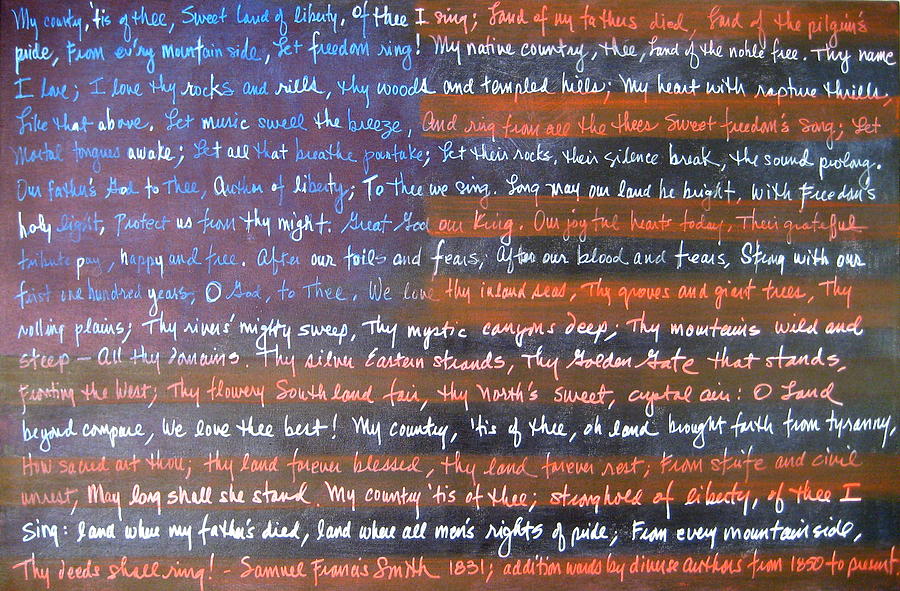 My country, 'tis of thee, Sweet Land of liberty, Of thee I sing; Land of my fathers died, Land of the pilgrim's
pride, From ev'ry mountain side, Let freedom ring! My native country, thee, Land of the noble free. Thy name
I love; I love thy rocks and rills, thy woods and templed hills; My heart with rapture thrills,
Like that above. Let music swell the breeze, And ring from all the thees Sweet freedom's Song; Let
Mortal tongues awake; Let all that breathe partake; Let their rocks, their silence break, the sound prolong.
Our father's God to Thee, Author of liberty; To thee we sing. Long may our land be bright, With Freedom's
holy light, Protect us from thy might. Great God our King. Our joyful hearts today, Their grateful
tribute pay, happy and free. After our toils and fears, After our blood and tears, Strong with our
first one hundred years, O God, to Thee. We love thy inland seas, Thy groves and giant trees, Thy
rolling plains; Thy rivers' mighty sweep, Thy mystic canyons deep; Thy mountains wild and
steep - All thy domains. Thy silver Eastern strands, Thy Golden Gate that stands,
Fronting the West; Thy flowery South land fair, thy North's sweet, crystal air: O Land
beyond compare, We love thee best! My country, 'tis of thee, oh land brought forth from tyranny,
How sacred art thou; thy land forever blessed, thy land forever rest; From strife and civil
unrest, May long shall she stand. My country 'tis of thee; stronghold of liberty, of thee I
Sing: land where my father's died, land where all men's rights of pride; From every mountain side,
Thy deeds shall ring! - Samuel Francis Smith 1831; addition words by diverse authors from 1850 to present.